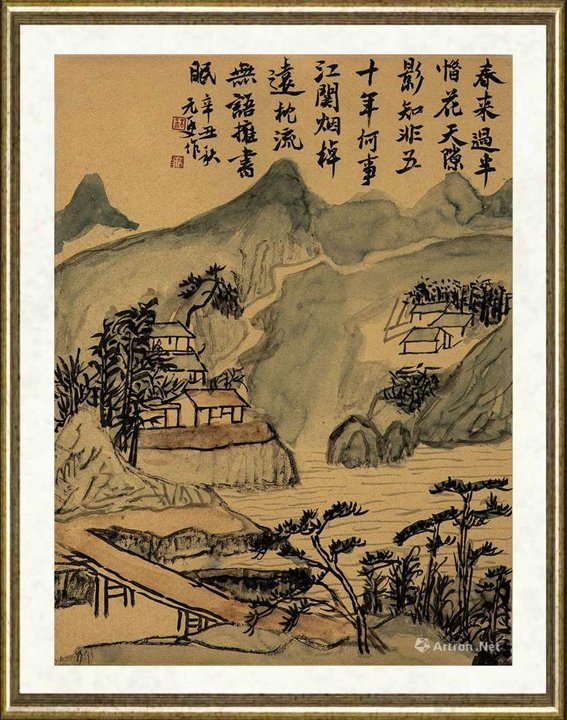 春来過半
惜花天隙
影知非五
十年何事
江関烟棹
遠枕流
無語擁書
眠
辛丑秋
元作
Artron.Net